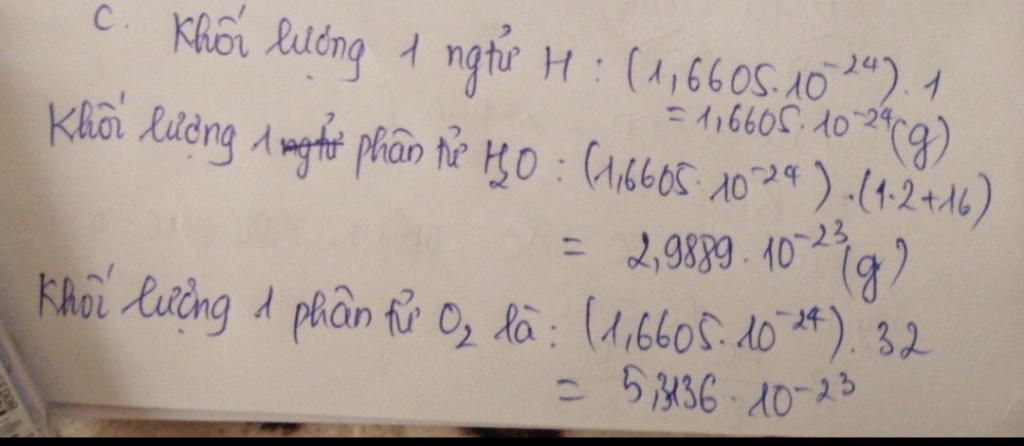 c. Khối lượng 1 ngtử H : (1,6605.10⁻²⁴).1
= 1,6605.10⁻²⁴(g)
Khối lượng 1 ngtử phân tử H₂O : (1,6605.10⁻²⁴).(1.2+16)
= 2,9889.10⁻²³(g)
Khối lượng 1 phân tử O₂ là: (1,6605.10⁻²⁴). 32
= 5,3136.10⁻²³